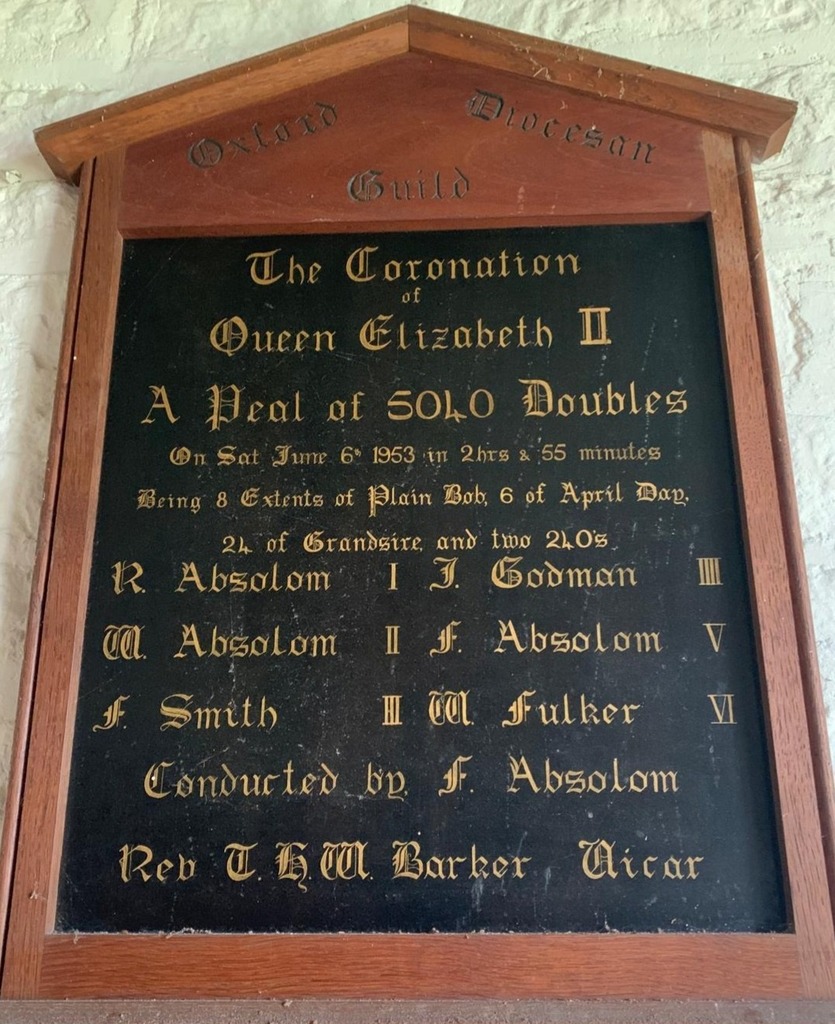 Oxford Diocesan
Guild
The Coronation
of
Queen Elizabeth II
A Peal of 5040 Doubles
On Sat June 6th 1953 in 2hrs & 55 minutes
Being 8 Extents of Plain Bob, 6 of April Day,
24 of Grandsire, and two 240's
R. Absolom I J. Godman IIII
W. Absolom II F. Absolom V
F. Smith III W. Fulker VI
Conducted by F. Absolom
Rev T. H. W. Barker Vicar